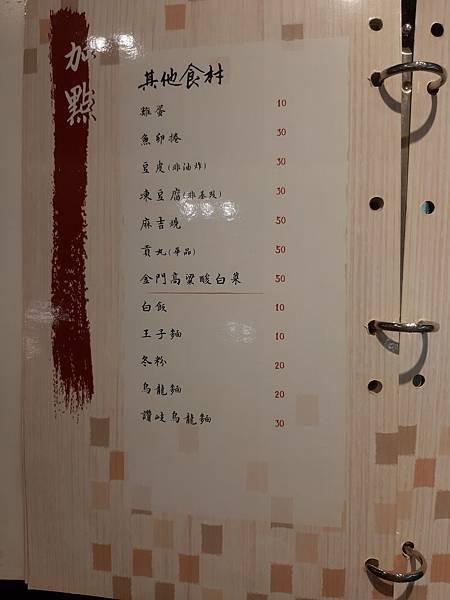 加點
其他食材
雞蛋 10
魚卵捲 30
豆皮(非油炸) 30
凍豆腐(非基改) 30
麻吉燒 50
貢丸(單品) 50
金門高粱酸白菜 50
白飯 10
王子麵 10
冬粉 20
烏龍麵 20
讚岐烏龍麵 30